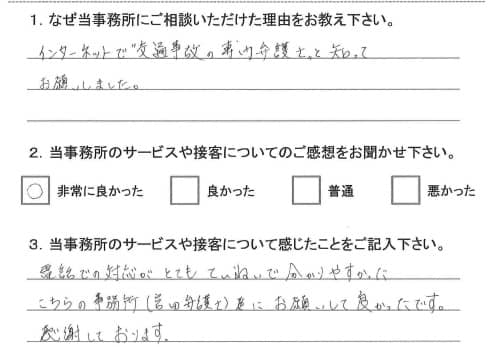 1. なぜ当事務所にご相談いただけた理由をお教え下さい。
インターネットで"交通事故の専門弁護士"と知って
お願いしました。
2. 当事務所のサービスや接客についてのご感想をお聞かせ下さい。
○ 非常に良かった 良かった 普通 悪かった
3. 当事務所のサービスや接客について感じたことをご記入下さい。
での対応がとてもていねいで分かりやすかった
こちらの事務所(吉田弁護士)にお願いして良かったです。
感謝しております。